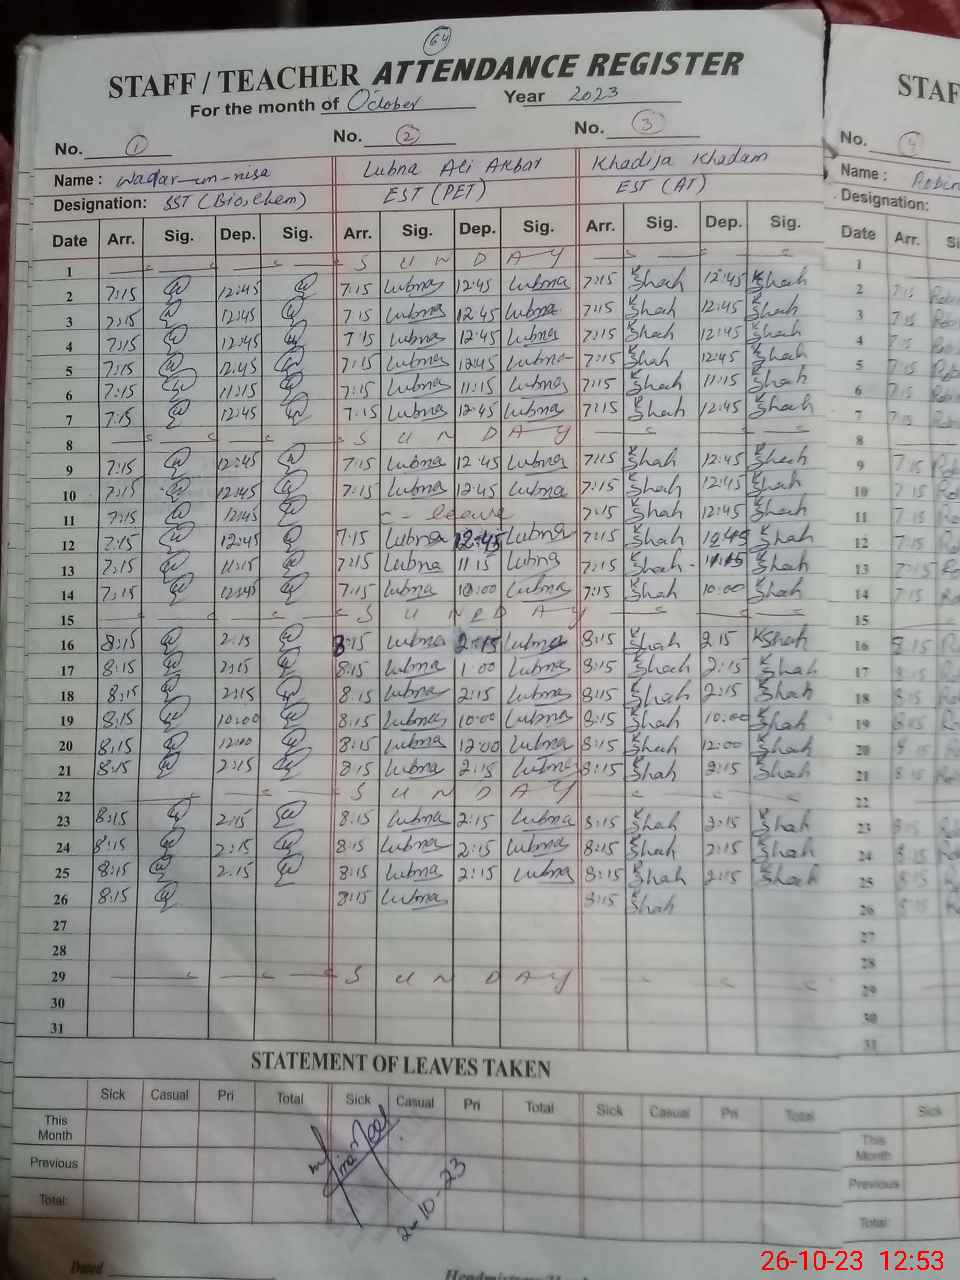 64
STAFF / TEACHER ATTENDANCE REGISTER STAF
For the month of October Year 2023
No. 1 No. 2 No. 3 No.
Name : Waqar-un-nisa Lubna Ali Akbar Khadija Khadam Name : Robin
Designation: SST (Bio, Chem) EST (PET) EST (AT) Designation:
Date Arr. Sig. Dep. Sig. Arr. Sig. Dep. Sig. Arr. Sig. Dep. Sig. Date Arr. Si
1 S U N D A Y 1
2 7:15 12:45 7:15 Lubna 12:45 Lubna 7:15 KShah 12:45 KShah 2 7:15
3 7:15 12:45 7:15 Lubna 12:45 Lubna 7:15 KShah 12:45 KShah 3 7:15
4 7:15 12:45 7:15 Lubna 12:45 Lubna 7:15 KShah 12:45 KShah 4 7:15
5 7:15 12:45 7:15 Lubna 12:45 Lubna 7:15 KShah 12:45 KShah 5 7:15
6 7:15 11:15 7:15 Lubna 11:15 Lubna 7:15 KShah 11:15 KShah 6 7:15
7 7:15 12:45 7:15 Lubna 12:45 Lubna 7:15 KShah 12:45 KShah 7 7:15
8 S U N D A Y 8
9 7:15 12:45 7:15 Lubna 12:45 Lubna 7:15 KShah 12:45 KShah 9 7:15
10 7:15 12:45 7:15 Lubna 12:45 Lubna 7:15 KShah 12:45 KShah 10 7:15
11 7:15 12:45 C - leave 7:15 KShah 12:45 KShah 11 7:15
12 7:15 12:45 7:15 Lubna 12:45 Lubna 7:15 KShah 12:45 KShah 12 7:15
13 7:15 11:15 7:15 Lubna 11:15 Lubna 7:15 KShah 11:15 KShah 13 7:15
14 7:15 12:45 7:15 Lubna 10:00 Lubna 7:15 KShah 10:00 KShah 14 7:15
15 S U N D A Y 15
16 8:15 2:15 8:15 Lubna 2:15 Lubna 8:15 KShah 2:15 KShah 16 8:15
17 8:15 2:15 8:15 Lubna 1:00 Lubna 8:15 KShah 2:15 KShah 17 8:15
18 8:15 2:15 8:15 Lubna 2:15 Lubna 8:15 KShah 2:15 KShah 18 8:15
19 8:15 10:00 8:15 Lubna 10:00 Lubna 8:15 KShah 10:00 KShah 19 8:15
20 8:15 12:00 8:15 Lubna 12:00 Lubna 8:15 KShah 12:00 KShah 20 8:15
21 8:15 2:15 8:15 Lubna 2:15 Lubna 8:15 KShah 2:15 KShah 21 8:15
22 S U N D A Y 22
23 8:15 2:15 8:15 Lubna 2:15 Lubna 8:15 KShah 2:15 KShah 23 8:15
24 8:15 2:15 8:15 Lubna 2:15 Lubna 8:15 KShah 2:15 KShah 24 8:15
25 8:15 2:15 8:15 Lubna 2:15 Lubna 8:15 KShah 2:15 KShah 25 8:15
26 8:15 8:15 Lubna 8:15 KShah 26 8:15
27 27
28 28
29 S U N D A Y 29
30 30
31 31
STATEMENT OF LEAVES TAKEN
Sick Casual Pri Total Sick Casual Pri Total Sick Casual Pri Total Sick
This Month This Month
Previous Previous
Total: Total:
2-10-23
Dated
26-10-23 12:53